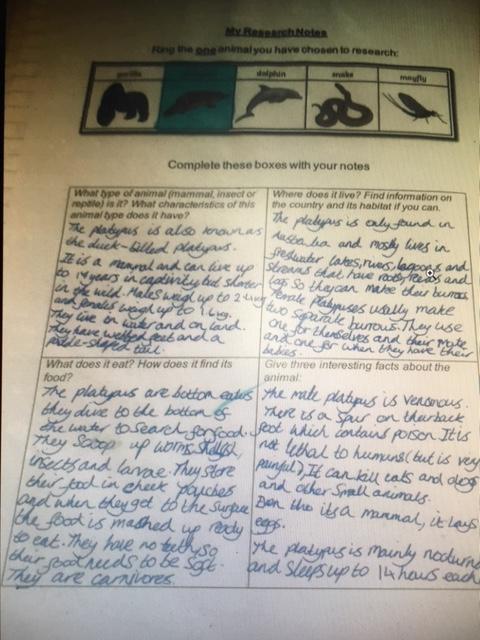 My Research Notes
Ring the one animal you have chosen to research:
gorilla
dolphin
snake
mayfly
Complete these boxes with your notes
What type of animal (mammal, insect or
reptile) is it? What characteristics of this
animal type does it have?
The platypus is also known as
the duck-billed platypus.
It is a mammal and can live up
to 14 years in captivity but shorter
in the wild. Males weigh up to 2.4kg
and females weigh up to 1.
They live in water and on land.
They have webbed feet and a
paddle-shaped tail.
Where does it live? Find information on
the country and its habitat if you can.
The platypus is only found in
Australia and mostly lives in
freshwater lakes, rivers, lagoons and
streams that have roots, reeds and
logs so they can make their burrows.
Female platypuses usually make
two separate burrows. They use
one for themselves and their mate
and one for when they have their
babies.
What does it eat? How does it find its
food?
The platypus are bottom eaters
they dive to the bottom of
the water to search for food.
They scoop up worms, shellfish,
insects and larvae. They store
their food in cheek pouches
and when they get to the surface
the food is mashed up ready
to eat. They have no teeth, so
their food needs to be soft.
They are carnivores.
Give three interesting facts about the
animal:
The male platypus is venomous.
There is a spur on their back
foot which contains poison. It is
not lethal to humans (but is very
painful). It can kill cats and dogs
and other small animals.
Even tho its a mammal, it lays
eggs.
The platypus is mainly nocturnal
and sleeps up to 14 hours each